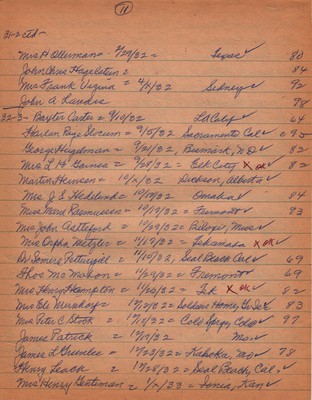 11
31-2 ctd-
Mrs H Ollerman - 4/29/32 = Texas ✓ 80
John Chris Hagelstein = 84
Mrs Frank Vizina = 4/x/32 = Sidney ✓ 92
John A Landis 78
32-3- Baxter Carter = 9/10/32 Ld Calif ✓ 64
Harlan Page Slocum = 9/5/32 Sacramento Cal ✓
George Hageman = 9/21/32, Bismark, N.D. ✓ 82
Mrs L H Gaines = 9/28/32 = Elk City X OK ✓ 82
Martin Hansen = 10/x/32 Dickson, Alberta ✓
Mrs J S Hedelund = 10/19/32 Omaha ✓ 84
Mrs Mine Rasmussen = 10/19/32 = Fremont ✓ 83
Mrs John Astleford = 10/29/32 = Biloxi, Miss ✓
Mrs Orpha Metzler = 11/15/32 = Tekamah X OK ✓
Dr Somers Pettingill = 11/10/32, Seal Beach Cal ✓ 69
Thos McMahon = 11/29/32 = Fremont ✓ 69
Mrs Henry Hampton = 11/30/32 = Tek X OK ✓ 82
Mrs Eli = 12/2/32 = Soldiers Home, 83
Mrs Peter C Stork = 12/11/32 = Colo Spgs, Colo ✓ 97
James Patrick = 12/17/32 Mo ✓
James L Greenlee = 12/22/32 = Kahoka, Mo ✓ 78
Henry Leach = 12/28/32 = Seal Beach, Cal ✓
Mrs Henry = 1/x/33 = Kan ✓